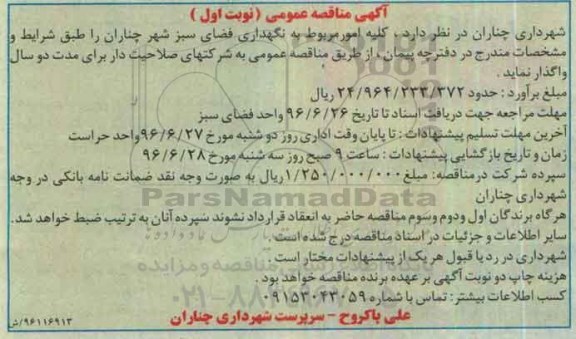 آگهی مناقصه عمومی (نوبت اول)
شهرداری چناران در نظر دارد ، کلیه امور مربوط به نگهداری فضای سبز شهر چناران را طبق شرایط و
مشخصات مندرج در دفترچه پیمان ، از طریق مناقصه عمومی به شرکتهای صلاحیت دار برای مدت دو سال
واگذار نماید .
مبلغ برآورد : حدود ۲۴/۹۶۴/۲۳۳/۳۷۲ ریال
مهلت مراجعه جهت دریافت اسناد تا تاریخ ۹۶/۶/۲۶ واحد فضای سبز
آخرین مهلت تسلیم پیشنهادات : تا پایان وقت اداری روز دو شنبه مورخ ۹۶/۶/۲۷ واحد حراست
زمان و تاریخ بازگشایی پیشنهادات : ساعت ۹ صبح روز سه شنبه مورخ ۹۶/۶/۲۸
سپرده شرکت در مناقصه : مبلغ ۱/۲۵۰/۰۰۰/۰۰۰ ریال به صورت وجه نقد ضمانت نامه بانکی در وجه
شهرداری چناران
هرگاه برندگان اول و دوم و سوم مناقصه حاضر به انعقاد قرارداد نشوند سپرده آنان به ترتیب ضبط خواهد شد.
سایر اطلاعات و جزئیات در اسناد مناقصه درج شده است .
شهرداری در رد یا قبول هر یک از پیشنهادات مختار است .
هزینه چاپ دو نوبت آگهی بر عهده برنده مناقصه خواهد بود .
کسب اطلاعات بیشتر : تماس با شماره ۰۹۱۵۳۰۴۳۰۵۹
علی پاکروح - سرپرست شهرداری چناران
۹۶۱۱۶۹۱۳/ش
ParsNamadData